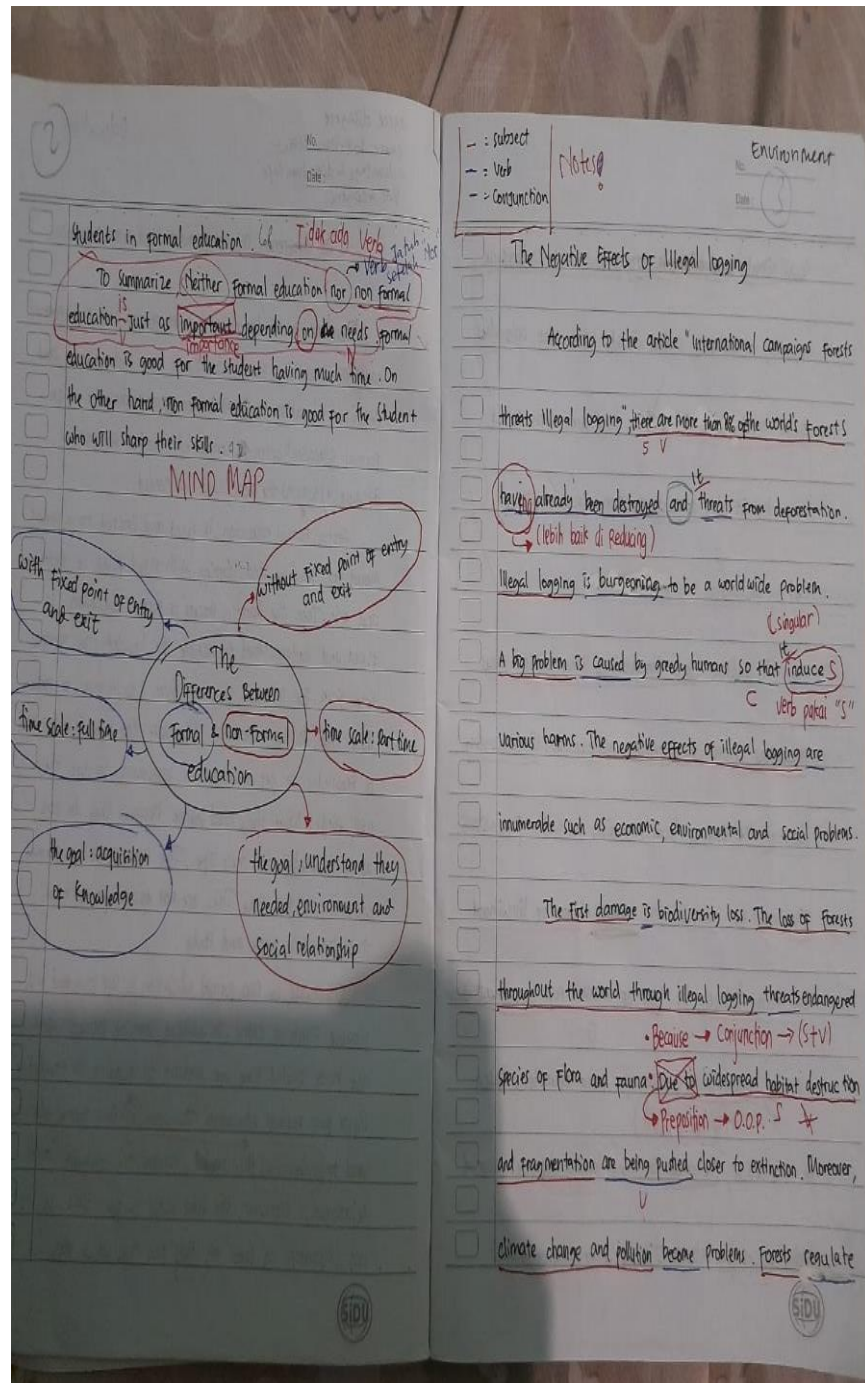 2
No.
Date :
Students in formal education. Tidak ada Verb
Verb Jatuh
setelah Nor
To summarize Neither formal education nor non formal
is
education just as important depending on needs. formal
V
importance
N
education is good for the student having much time. On
the other hand, non formal education is good for the student
who will sharp their skills.
MIND MAP
with fixed point of entry
and exit
without fixed point of entry
and exit
The
Differences Between
Formal & non-Formal
education
time scale : full time
time scale : part time
the goal : acquisition
of knowledge
the goal : understand they
needed, environment and
social relationship
SiDU
- : subject
- : Verb
- : Conjunction
Notes!
Environment
No.
Date :
3
The Negative Effects of Illegal logging
According to the article "International campaigns forests
threats Illegal logging", there are more than of the world's forests
S V
having already been destroyed and it threats from deforestation.
(lebih baik di Reducing)
Illegal logging is burgeoning to be a worldwide problem.
(singular)
it
A big problem is caused by greedy humans so that induce S
C verb pakai "S"
various harms. The negative effects of illegal logging are
innumerable such as economic, environmental and social problems.
The first damage is biodiversity loss. The loss of forests
throughout the world through illegal logging threats endangered
• Because → Conjunction → (S+V)
species of flora and fauna. Due to widespread habitat destruction
Preposition → O.O.P. S
and fragmentation are being pushed closer to extinction. Moreover,
V
climate change and pollution become problems. Forests regulate
SiDU